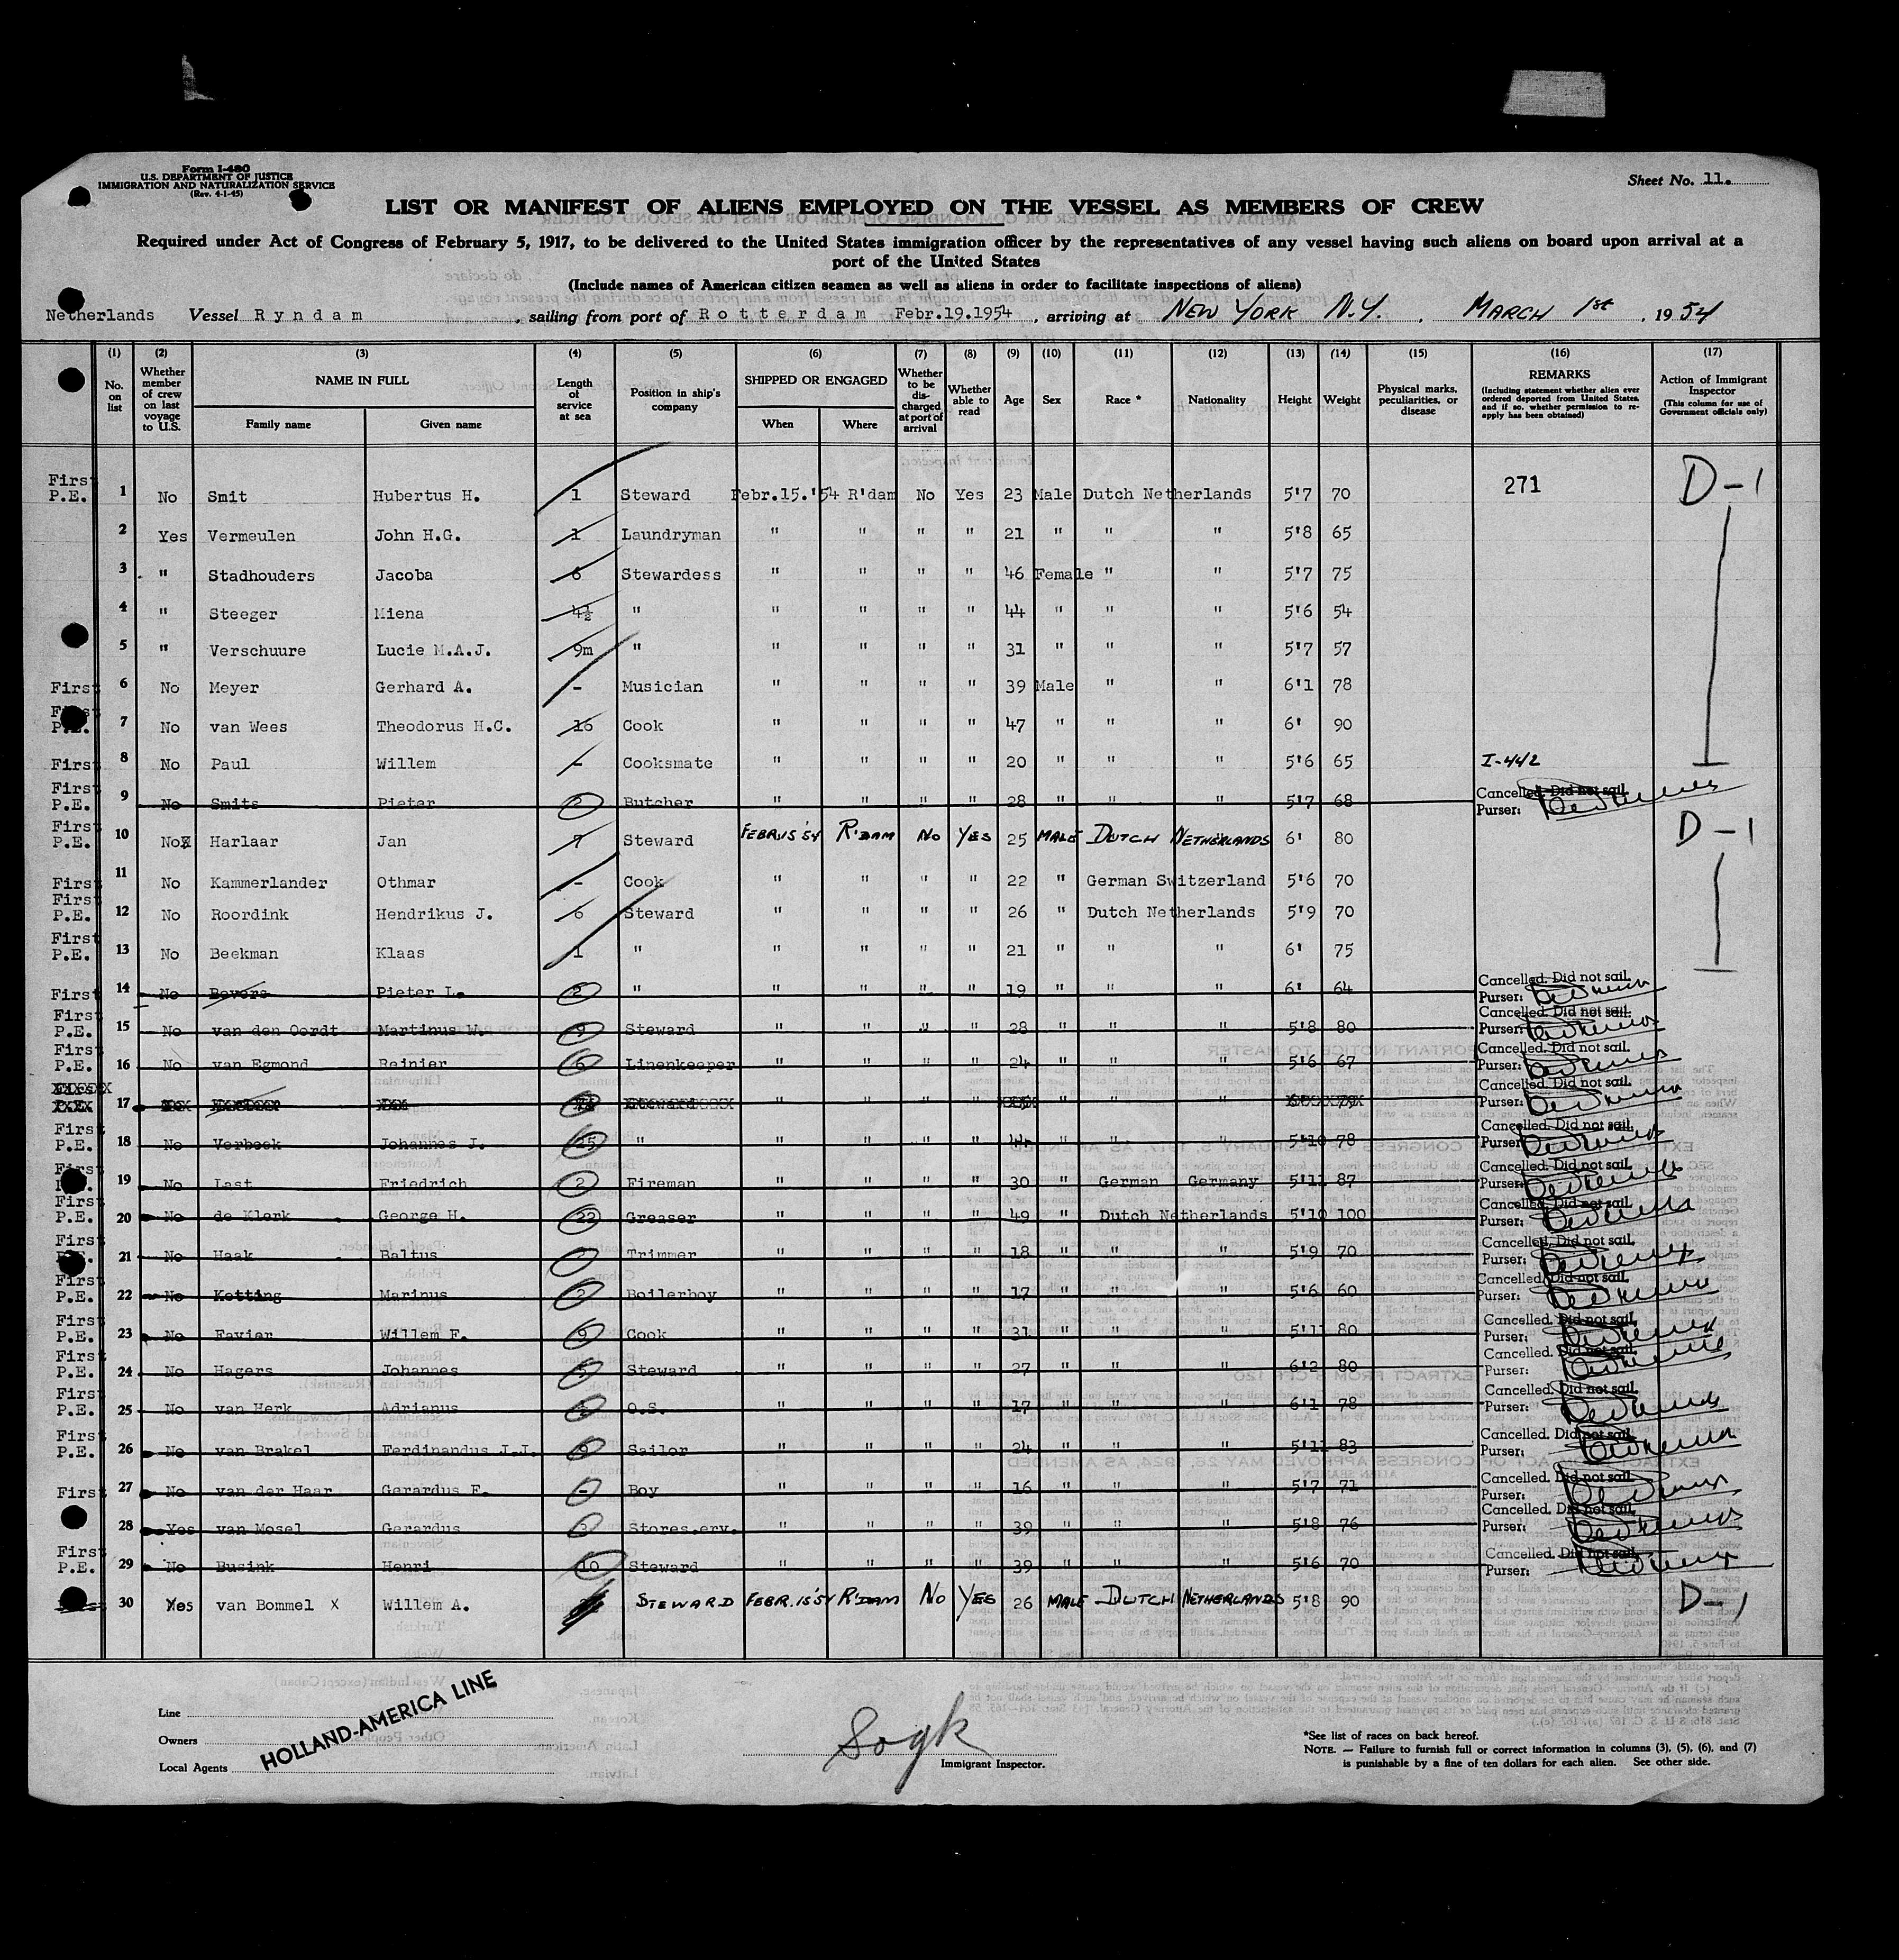 Form I-480
U.S. DEPARTMENT OF JUSTICE
IMMIGRATION AND NATURALIZATION SERVICE
(Rev. 4-1-45)
Sheet No. 11.
LIST OR MANIFEST OF ALIENS EMPLOYED ON THE VESSEL AS MEMBERS OF CREW
Required under Act of Congress of February 5, 1917, to be delivered to the United States immigration officer by the representatives of any vessel having such aliens on board upon arrival at a
port of the United States
(Include names of American citizen seamen as well as aliens in order to facilitate inspections of aliens)
Netherlands Vessel Ryndam, sailing from port of Rotterdam Febr.19.1954, arriving at NEW YORK N.Y., MARCH 1st, 1954
(1) (2) (3) (4) (5) (6) (7) (8) (9) (10) (11) (12) (13) (14) (15) (16) (17)
No. on list
Whether member of crew on last voyage to U.S.
NAME IN FULL
Family name Given name
Length of service at sea
Position in ship's company
SHIPPED OR ENGAGED
When Where
Whether to be discharged at port of arrival
Whether able to read
Age
Sex
Race *
Nationality
Height
Weight
Physical marks, peculiarities, or disease
REMARKS
(Including statement whether alien ever ordered deported from United States, and if so, whether permission to reapply has been obtained)
Action of Immigrant Inspector
(This column for use of Government officials only)
First P.E. 1 No Smit Hubertus H. 1 Steward Febr.15.'54 R'dam No Yes 23 Male Dutch Netherlands 5'7 70 271 D-1
2 Yes Vermeulen John H.G. 1 Laundryman " " " " 21 " " " 5'8 65
3 " Stadhouders Jacoba 6 Stewardess " " " " 46 Female " " 5'7 75
4 " Steeger Miena 4½ " " " " " 44 " " " 5'6 54
5 " Verschuure Lucie M.A.J. 9m " " " " " 31 " " " 5'7 57
First 6 No Meyer Gerhard A. - Musician " " " " 39 Male " " 6'1 78
First P.E. 7 No van Wees Theodorus H.C. 16 Cook " " " " 47 " " " 6' 90
First 8 No Paul Willem - Cooksmate " " " " 20 " " " 5'6 65 I-442
First P.E. 9 No Smits Pieter 2 Butcher " " " " 28 " " " 5'7 68 Cancelled. Did not sail. Purser:
First P.E. 10 No Harlaar Jan 7 Steward FEBR.15'54 R'DAM NO YES 25 MALE DUTCH NETHERLANDS 6' 80 D-1
First 11 No Kammerlander Othmar - Cook " " " " 22 " German Switzerland 5'6 70
First P.E. 12 No Roordink Hendrikus J. 6 Steward " " " " 26 " Dutch Netherlands 5'9 70
First P.E. 13 No Beekman Klaas 1 " " " " " 21 " " " 6' 75
First 14 No Bovers Pieter L. 2 " " " " " 19 " " " 6' 64 Cancelled. Did not sail. Purser:
First P.E. 15 No van den Oordt Martinus W. 9 Steward " " " " 28 " " " 5'8 80 Cancelled. Did not sail. Purser:
First P.E. 16 No van Egmond Reinier 6 Linenkeeper " " " " 24 " " " 5'6 67 Cancelled. Did not sail. Purser:
17 Steward " " " " " " " Cancelled. Did not sail. Purser:
First P.E. 18 No Verbeek Johannes J. 25 " " " " " 44 " " " 5'10 78 Cancelled. Did not sail. Purser:
First 19 No Last Friedrich 2 Fireman " " " " 30 " German Germany 5'11 87 Cancelled. Did not sail. Purser:
First P.E. 20 No de Klerk George H. 22 Greaser " " " " 49 " Dutch Netherlands 5'10 100 Cancelled. Did not sail. Purser:
First P.E. 21 No Haak Baltus Trimmer " " " " 18 " " " 5'9 70 Cancelled. Did not sail. Purser:
First P.E. 22 No Ketting Marinus 2 Boilerboy " " " " 17 " " " 5'6 60 Cancelled. Did not sail. Purser:
First P.E. 23 No Favier Willem F. 9 Cook " " " " 31 " " " 5'11 80 Cancelled. Did not sail. Purser:
First P.E. 24 No Hagers Johannes Steward " " " " 27 " " " 6'2 80 Cancelled. Did not sail. Purser:
First P.E. 25 No van Herk Adrianus O.S. " " " " 17 " " " 6'1 78 Cancelled. Did not sail. Purser:
First P.E. 26 No van Brakel Ferdinandus J.J. 9 Sailor " " " " 24 " " " 5'11 83 Cancelled. Did not sail. Purser:
First 27 No van der Haar Gerardus F. - Boy " " " " 16 " " " 5'7 71 Cancelled. Did not sail. Purser:
28 Yes van Mosel Gerardus 3 Stores.erv. " " " " 39 " " " 5'8 76 Cancelled. Did not sail. Purser:
First P.E. 29 No Busink Henri 10 Steward " " " " 39 " " " 5'6 70 Cancelled. Did not sail. Purser:
30 Yes van Bommel x Willem A. STEWARD FEBR.15'54 R'DAM NO YES 26 MALE DUTCH NETHERLANDS 5'8 90 D-1
Line
Owners
Local Agents
HOLLAND-AMERICA LINE
Immigrant Inspector.
*See list of races on back hereof.
NOTE. — Failure to furnish full or correct information in columns (3), (5), (6), and (7)
is punishable by a fine of ten dollars for each alien. See other side.